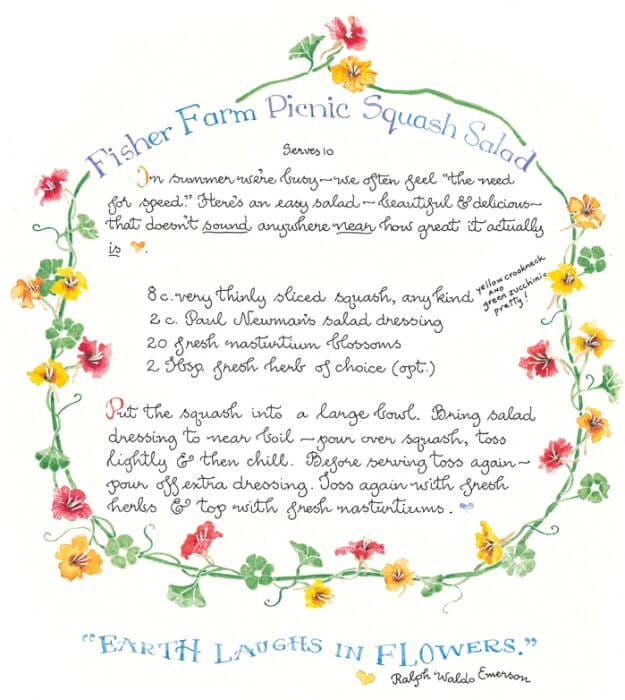 Fisher Farm Picnic Squash Salad
Serves 10
In summer we're busy~we often feel "the need
for speed." Here's an easy salad ~ beautiful & delicious~
that doesn't sound anywhere near how great it actually
is.
8 c. very thinly sliced squash, any kind
yellow crookneck
AND
green zucchini=
pretty!
2 c. Paul Newman's salad dressing
20 fresh nasturtium blossoms
2 tbsp. fresh herb of choice (opt.)
Put the squash into a large bowl. Bring salad
dressing to near boil ~ pour over squash, toss
lightly & then chill. Before serving toss again~
pour off extra dressing. Toss again with fresh
herbs & top with fresh nasturtiums.
"EARTH LAUGHS IN FLOWERS."
Ralph Waldo Emerson